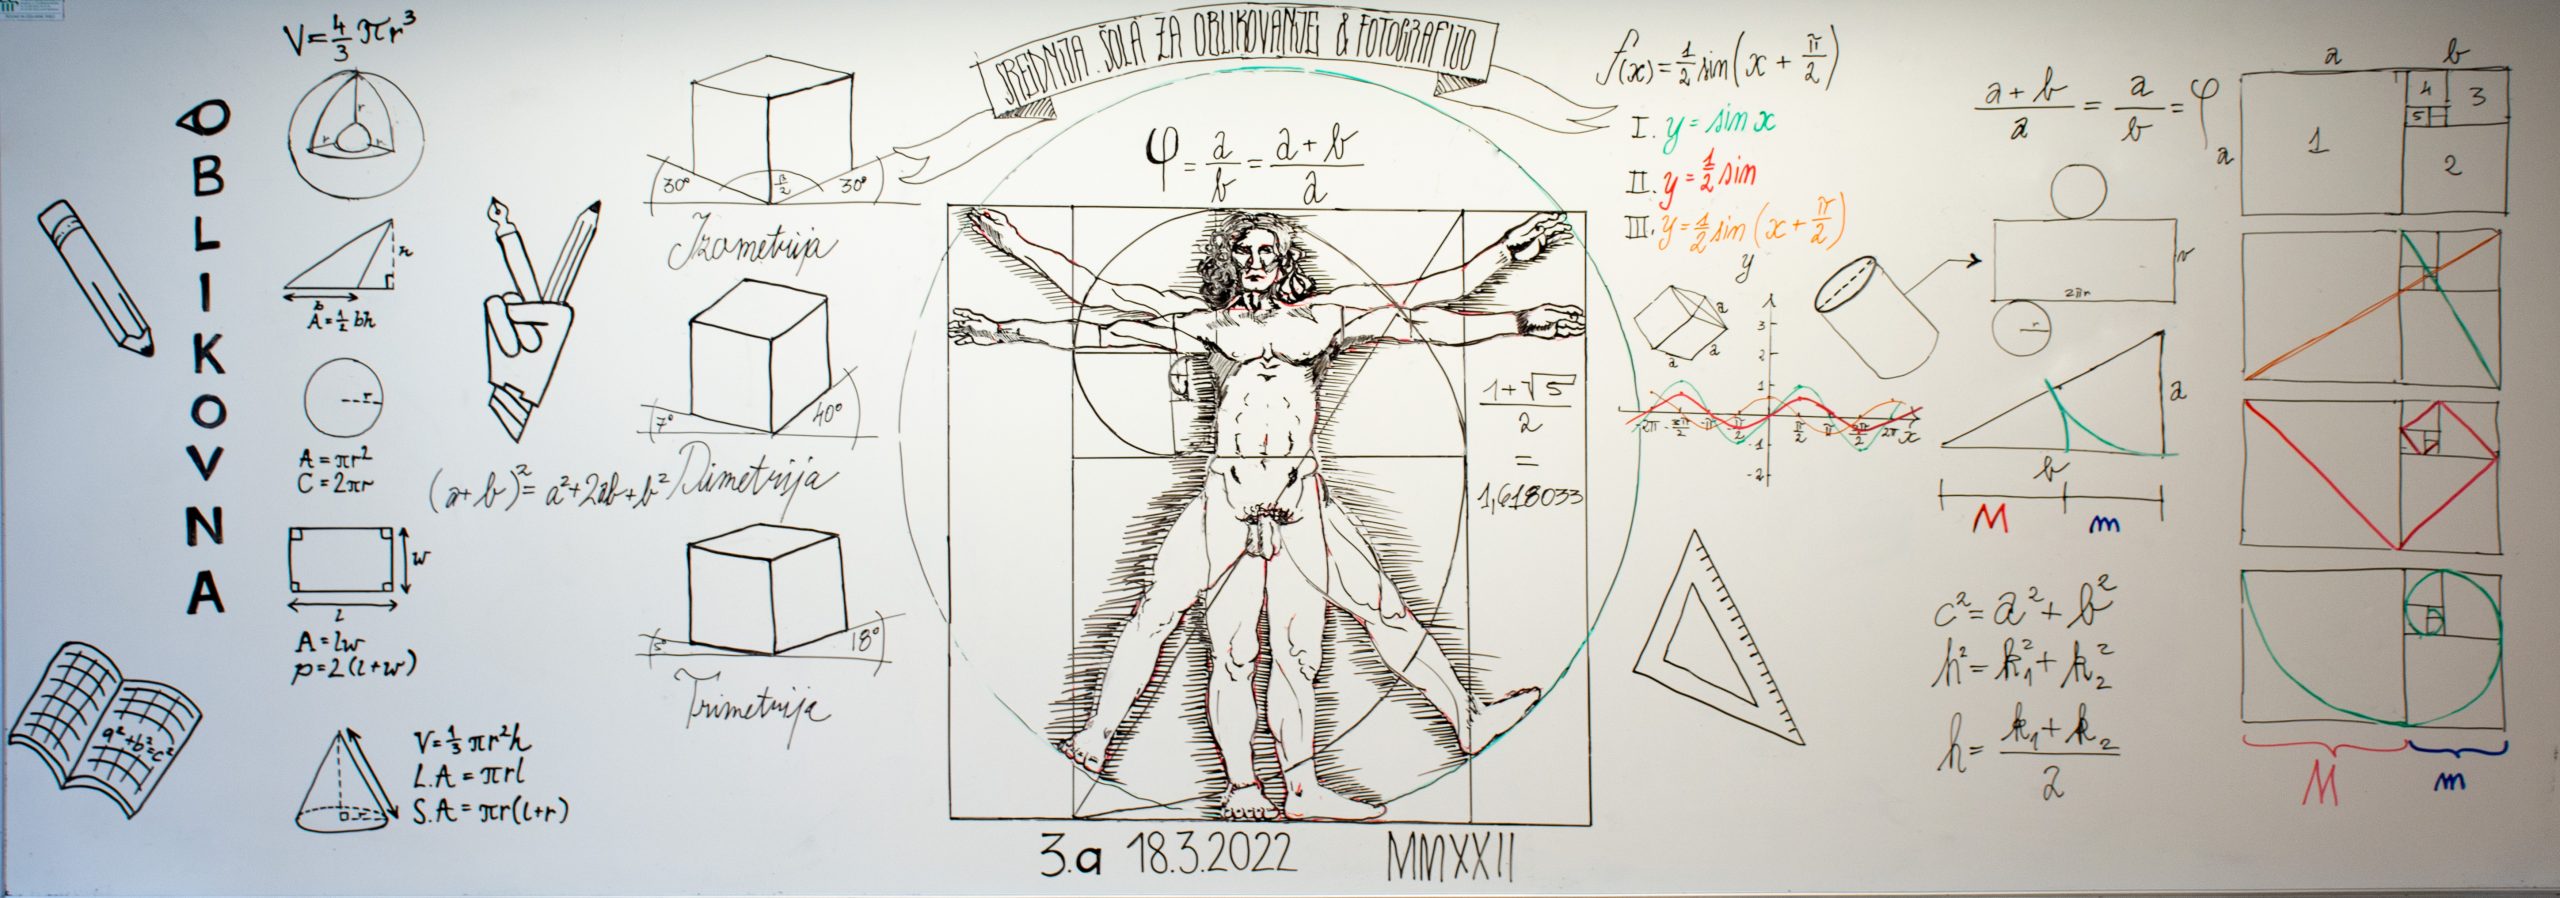 OBLIKOVNA
V=4/3 πr³
r
r
r
h
b
A=1/2 bh
r
A=πr²
C=2πr
w
l
A=lw
p=2(l+w)
a²+b²=c²
V=1/3 πr²h
L.A=πrl
S.A=πr(l+r)
(a+b)²=a²+2ab+b²
30°
π/2
30°
Izometrija
7°
40°
Dimetrija
5°
18°
Trimetrija
SREDNJA ŠOLA ZA OBLIKOVANJE & FOTOGRAFIJO
φ=a/b=a+b/a
1+√5/2
=
1,618033
3.a 18.3.2022 MMXXII
f(x)=1/2 sin(x+π/2)
I. y=sin x
II. y=1/2 sin
III. y=1/2 sin(x+π/2)
y
a
a
a
3
2
1
-2π -3π/2 -π -π/2 π/2 π 3π/2 2π x
-1
-2
a+b/a=a/b=φ
v
2πr
r
a
b
M m
c²=a²+b²
h²=k₁²+k₂²
h=k₁+k₂/2
a b
a
1
4 3
5
2
M m